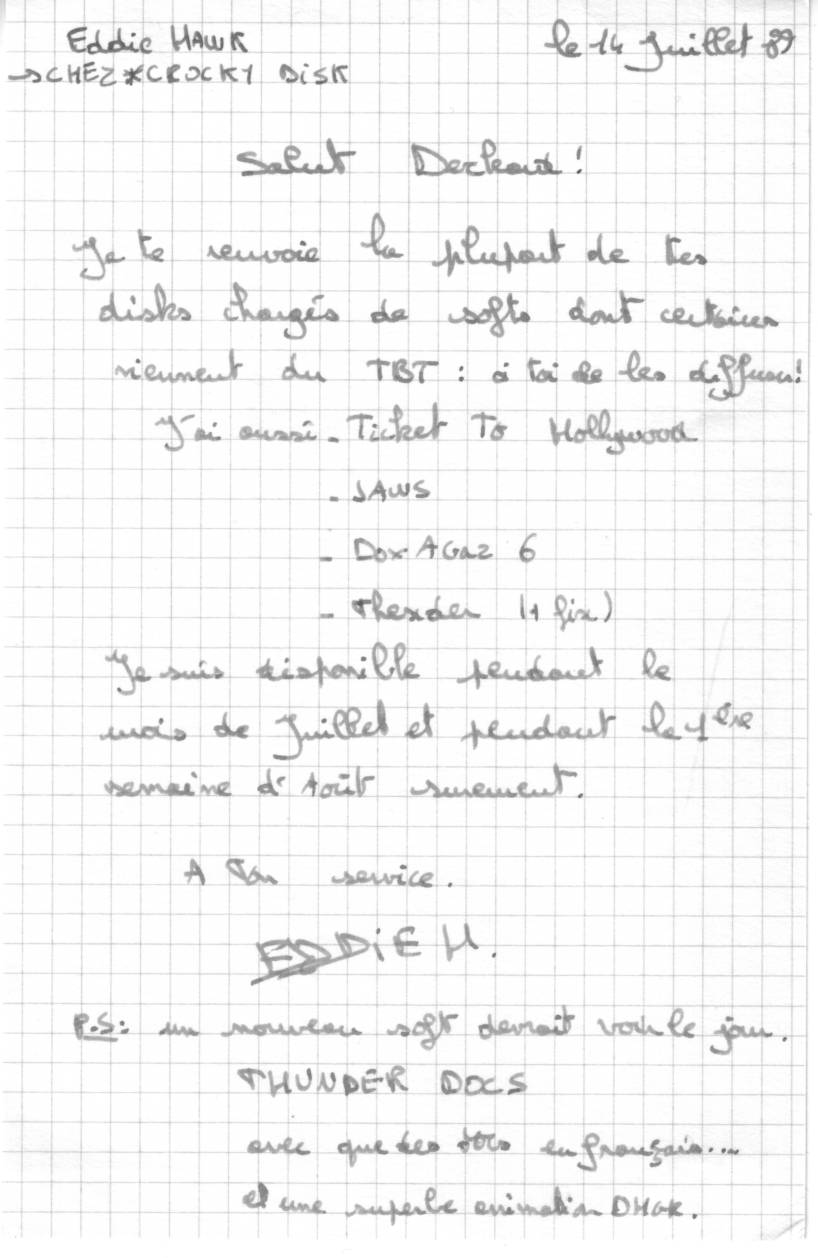 Eddie HAWK
le 14 Juillet 89
→CHEZ*CROCKY DiSK
Salut Deckard !
Je te renvoie la plupart de tes
disks chargés de softs dont certains
viennent du TBT : à toi de les diffuser!
J'ai aussi - Ticket To Hollywood
- JAWS
- Dox AGaz 6
- Thexder (1 fix)
Je suis disponible pendant le
mois de Juillet et pendant le 1ère
semaine d'Août surement.
A Ton service.
EDDiE H.
P.S: un nouveau soft devrait voir le jour.
THUNDER DOCS
avec que des docs en français....
et une superbe animation DHGR.